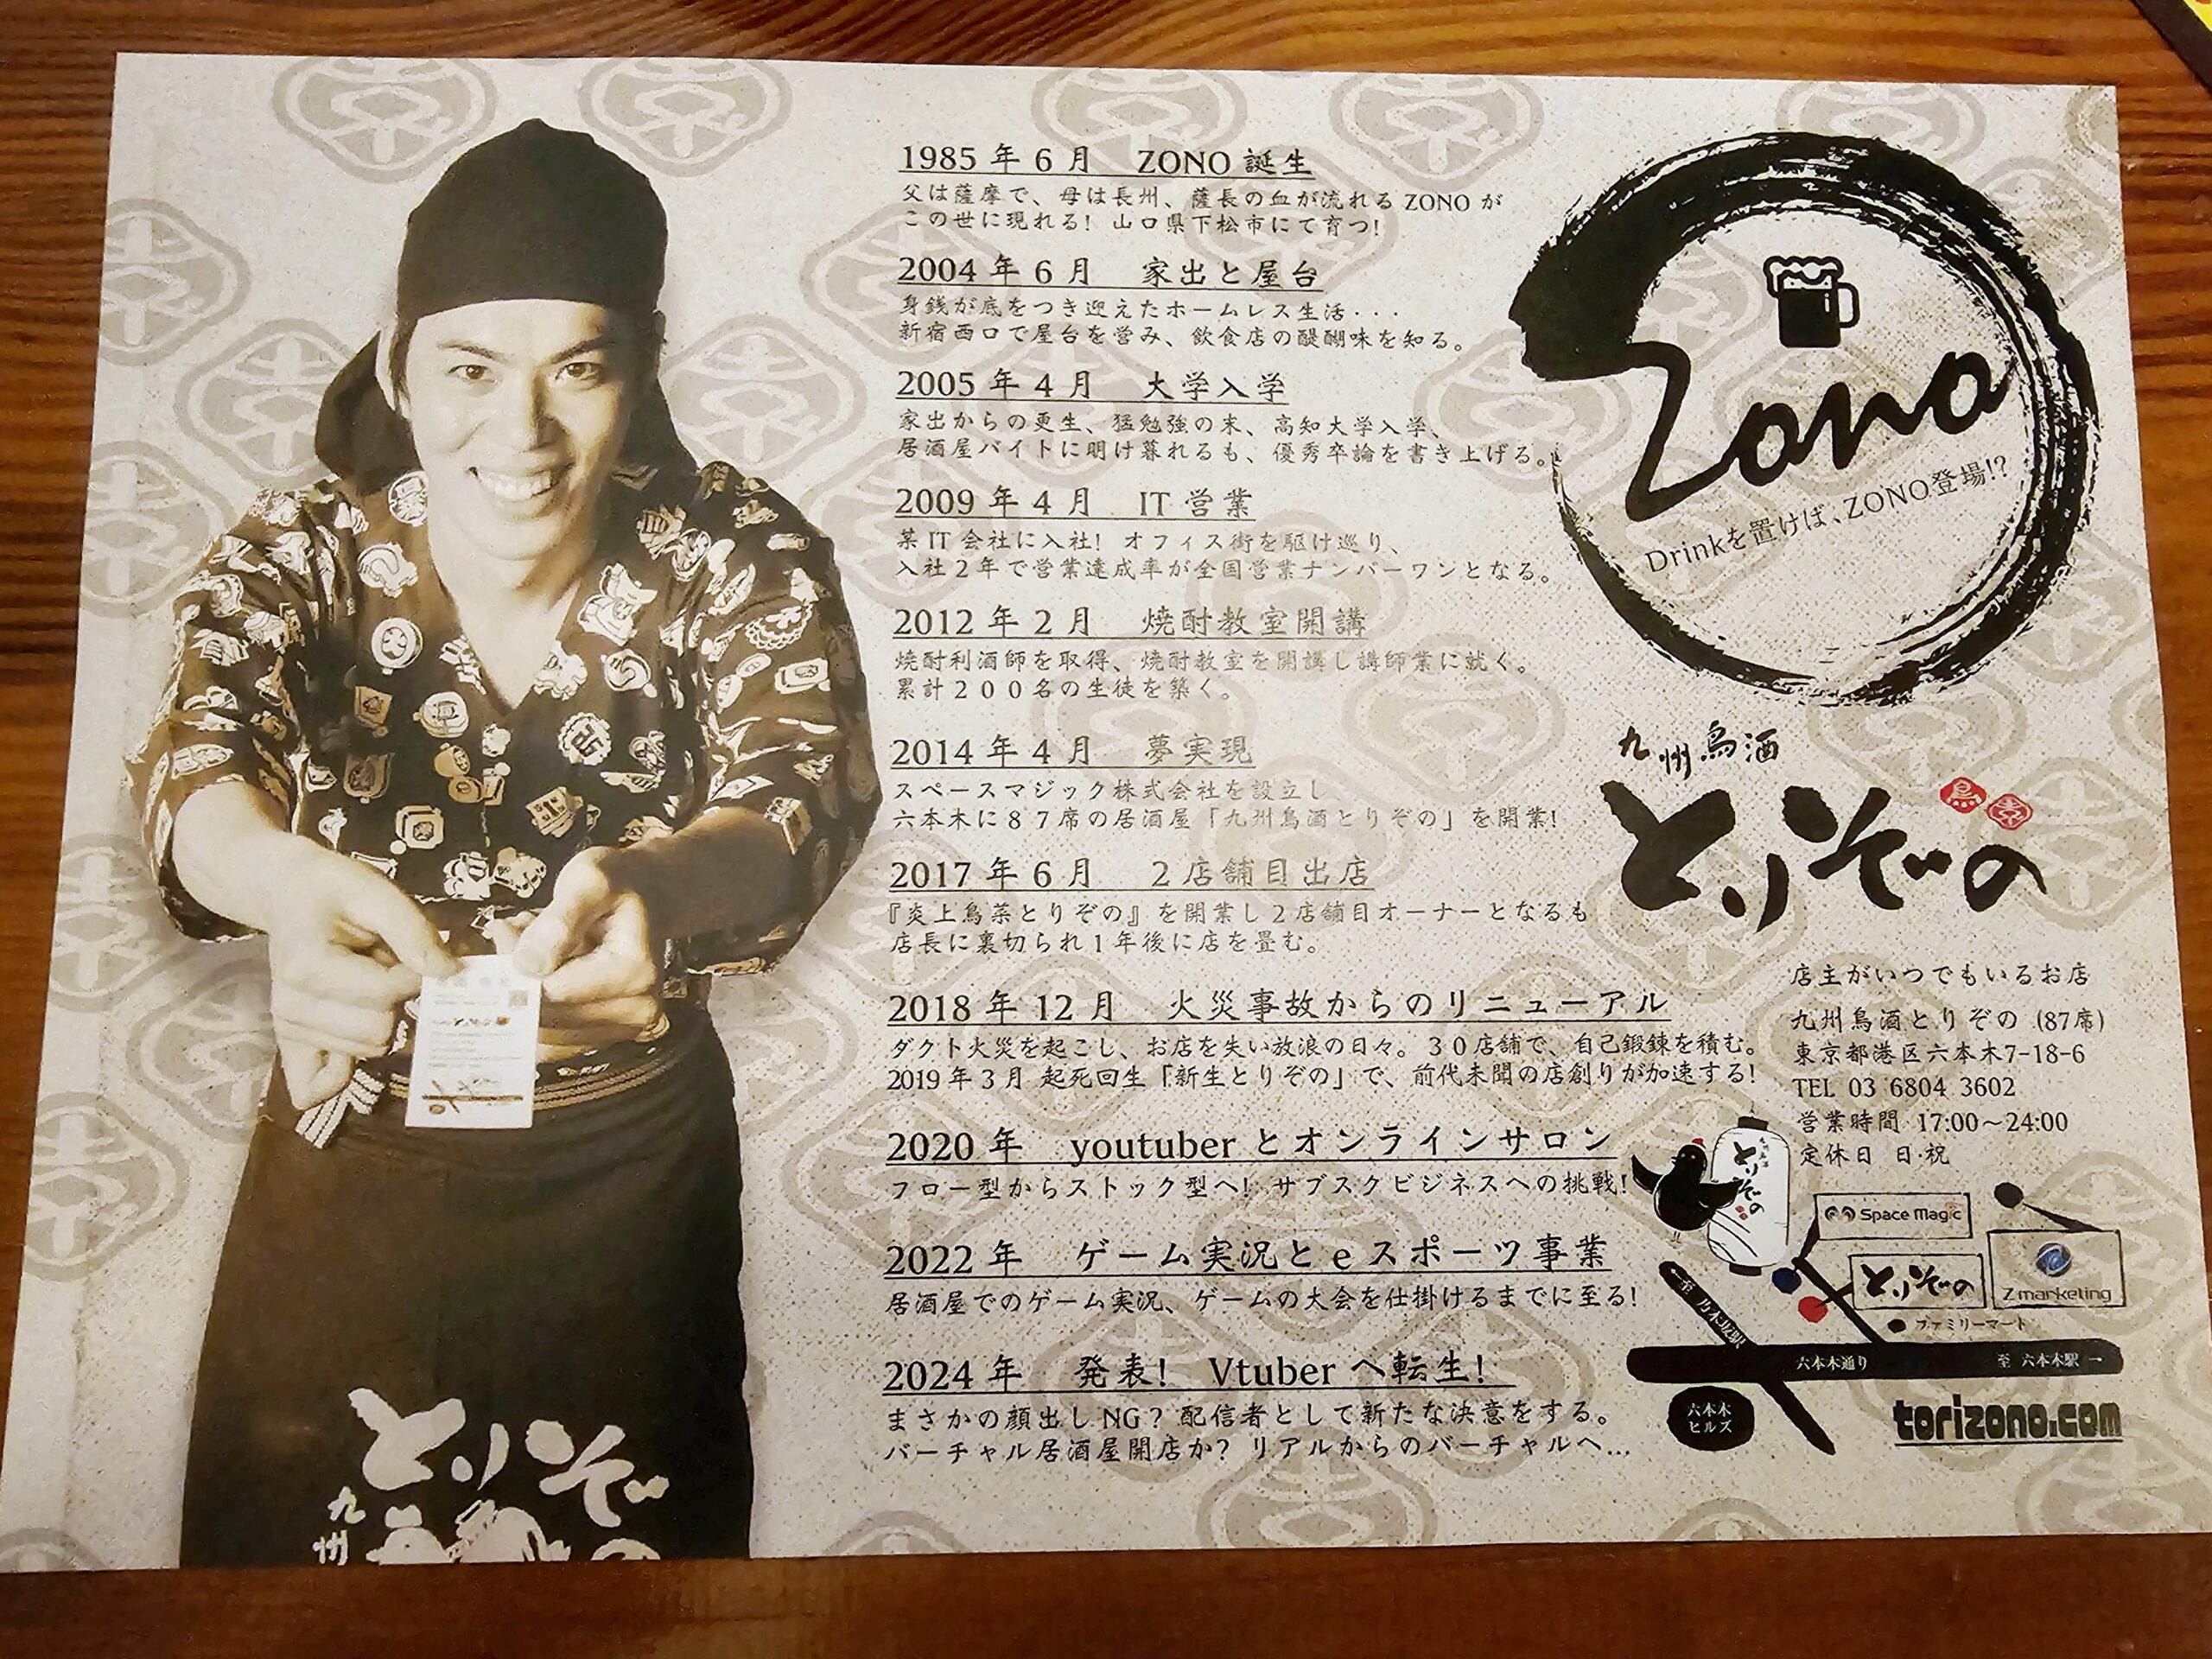 1985年6月 ZONO誕生
父は薩摩で、母は長州、薩長の血が流れるZONOが
この世に現れる! 山口県下松市にて育つ!
2004年6月 家出と屋台
身銭が底をつき迎えたホームレス生活・・・
新宿西口で屋台を営み、飲食店の醍醐味を知る。
2005年4月 大学入学
家出からの更生、猛勉強の末、高知大学入学、
居酒屋バイトに明け暮れるも、優秀卒論を書き上げる。
2009年4月 IT営業
某IT会社に入社! オフィス街を駆け巡り、
入社2年で営業達成率が全国営業ナンバーワンとなる。
2012年2月 焼酎教室開講
焼酎利酒師を取得、焼酎教室を開講し講師業に就く。
累計200名の生徒を築く。
2014年4月 夢実現
スペースマジック株式会社を設立し
六本木に87席の居酒屋「九州鳥酒とりぞの」を開業!
2017年6月 2店舗目出店
『炎上鳥菜とりぞの』を開業し2店舗目オーナーとなるも
店長に裏切られ1年後に店を畳む。
2018年12月 火災事故からのリニューアル
ダクト火災を起こし、お店を失い放浪の日々。30店舗で、自己鍛錬を積む。
2019年3月 起死回生「新生とりぞの」で、前代未聞の店創りが加速する!
2020年 youtuberとオンラインサロン
フロー型からストック型へ! サブスクビジネスへの挑戦!
2022年 ゲーム実況とeスポーツ事業
居酒屋でのゲーム実況、ゲームの大会を仕掛けるまでに至る!
2024年 発表! Vtuberへ転生!
まさかの顔出しNG?配信者として新たな決意をする。
バーチャル居酒屋開店か? リアルからのバーチャルへ…
Zono
Drinkを置けば、ZONO登場!?
九州鳥酒
とりぞの
鳥
店主がいつでもいるお店
九州鳥酒とりぞの (87席)
東京都港区六本木7-18-6
TEL 03 6804 3602
営業時間 17:00〜24:00
定休日 日・祝
とりぞの
Space Magic
とりぞの
Z marketing
ファミリーマート
←至 乃木坂駅
六本木通り
至 六本木駅 →
六本木
ヒルズ
torizono.com
とりぞの
九